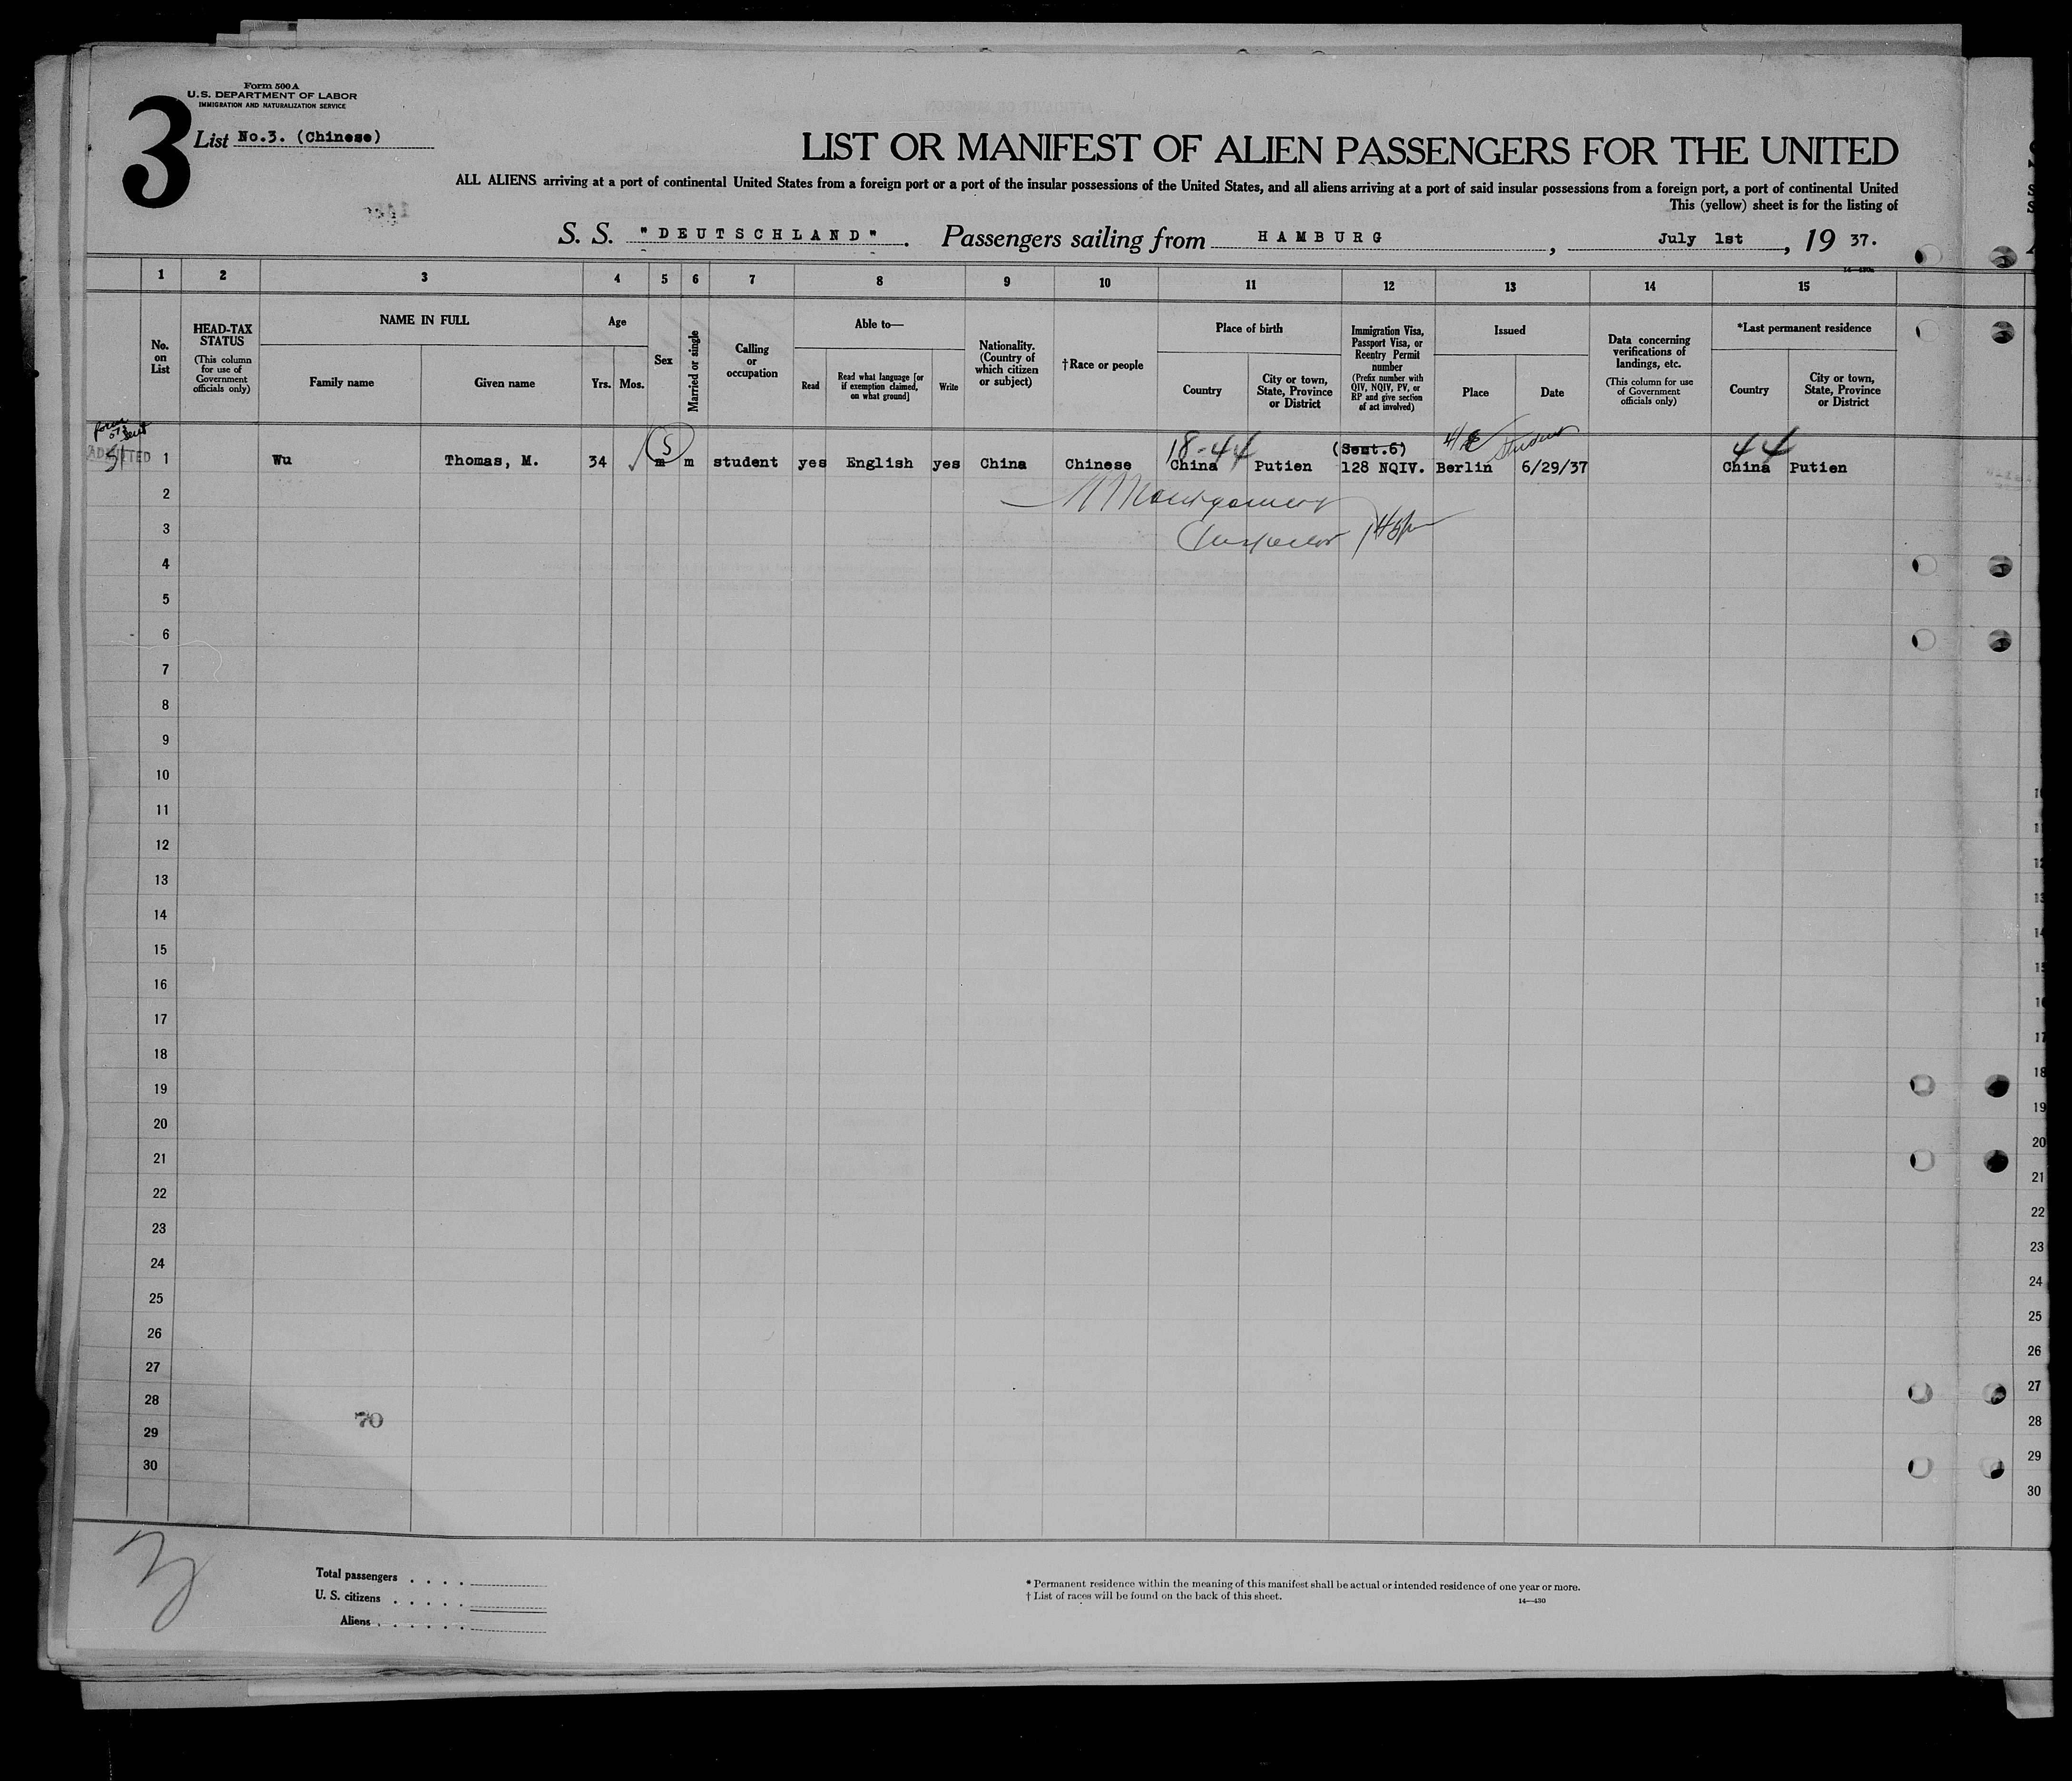 Form 500 A
U.S. DEPARTMENT OF LABOR
IMMIGRATION AND NATURALIZATION SERVICE
3
List No.3. (Chinese)
LIST OR MANIFEST OF ALIEN PASSENGERS FOR THE UNITED
ALL ALIENS arriving at a port of continental United States from a foreign port or a port of the insular possessions of the United States, and all aliens arriving at a port of said insular possessions from a foreign port, a port of continental United
This (yellow) sheet is for the listing of
S. S. "DEUTSCHLAND". Passengers sailing from HAMBURG, July 1st, 19 37.
1 2 3 4 5 6 7 8 9 10 11 12 13 14 15
No. on List
HEAD-TAX STATUS (This column for use of Government officials only)
NAME IN FULL
Family name
Given name
Age
Yrs.
Mos.
Sex
Married or single
Calling or occupation
Able to—
Read
Read what language [or if exemption claimed, on what ground]
Write
Nationality. (Country of which citizen or subject)
†Race or people
Place of birth
Country
City or town, State, Province or District
Immigration Visa, Passport Visa, or Reentry Permit number (Prefix number with QIV, NQIV, PV, or RP and give section of act involved)
Issued
Place
Date
Data concerning verifications of landings, etc. (This column for use of Government officials only)
*Last permanent residence
Country
City or town, State, Province or District
ADMITTED
S
18-44
Student
44
1 Wu Thomas, M. 34 m m student yes English yes China Chinese China Putien 128 NQIV. Berlin 6/29/37 China Putien
2
Montgomery
3
Inspector
4
5
6
7
8
9
10
11
12
13
14
15
16
17
18
19
20
21
22
23
24
25
26
27
28
29
30
70
3
Total passengers
U. S. citizens
Aliens
* Permanent residence within the meaning of this manifest shall be actual or intended residence of one year or more.
† List of races will be found on the back of this sheet.
14—430
10
11
12
13
14
15
16
17
18
19
20
21
22
23
24
25
26
27
28
29
30